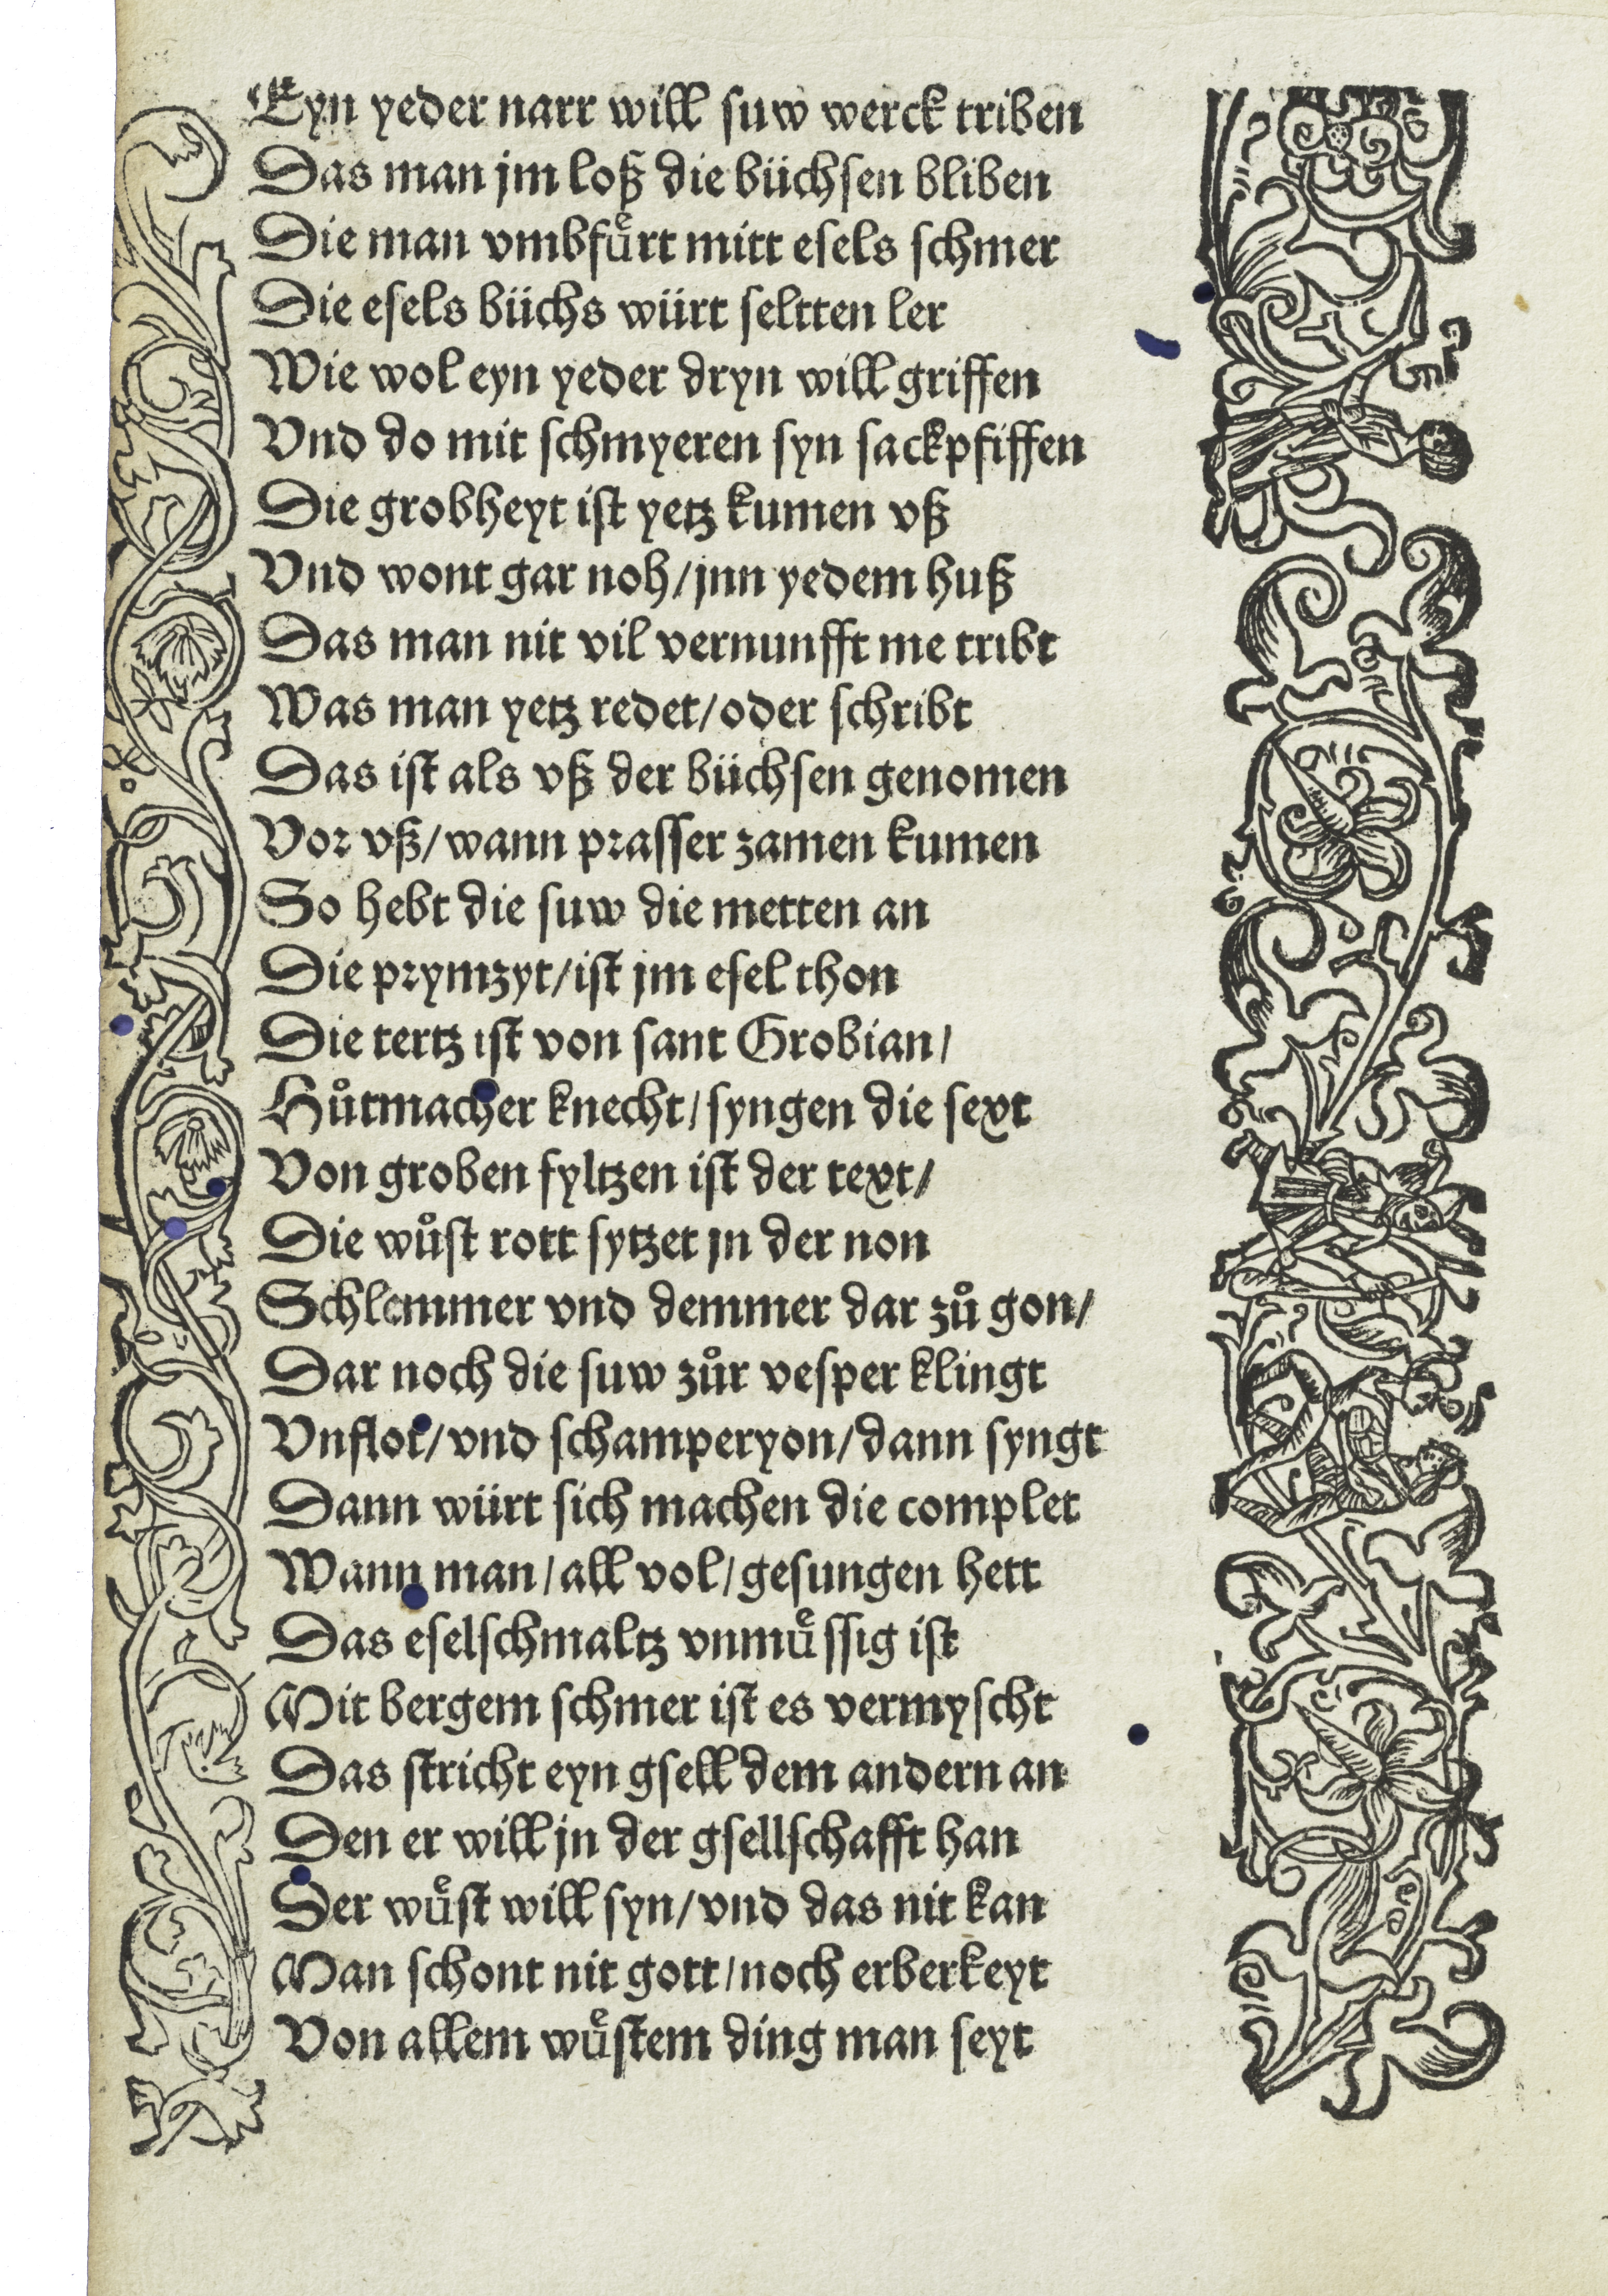 Eyn yeder narr will suw werck triben
Das man jm loß die büchsen bliben
Die man vmbfuͤrt mitt esels schmer
Die esels büchs würt seltten ler
Wie wol eyn yeder dryn will griffen
Vnd do mit schmyeren syn sackpfiffen
Die grobheyt ist yetz kumen vß
Vnd wont gar noh/jnn yedem huß
Das man nit vil vernunfft me tribt
Was man yetz redet/oder schribt
Das ist als vß der büchsen genomen
Vor vß/wann prasser zamen kumen
So hebt die suw die metten an
Die prymzyt/ist jm esel thon
Die tertz ist von sant Grobian/
Huͦtmacher knecht/syngen die sext
Von groben fyltzen ist der text/
Die wuͦst rott sytzet jn der non
Schlemmer vnd demmer dar zuͦ gon/
Dar noch die suw zuͦr vesper klingt
Vnflot/vnd schamperyon/dann syngt
Dann würt sich machen die complet
Wann man/all vol/gesungen hett
Das eselschmaltz vnmuͤssig ist
Mit bergem schmer ist es vermyscht
Das stricht eyn gsell dem andern an
Den er will jn der gsellschafft han
Der wuͤst will syn/vnd das nit kan
Man schont nit gott/noch erberkeyt
Von allem wuͤstem ding man seyt